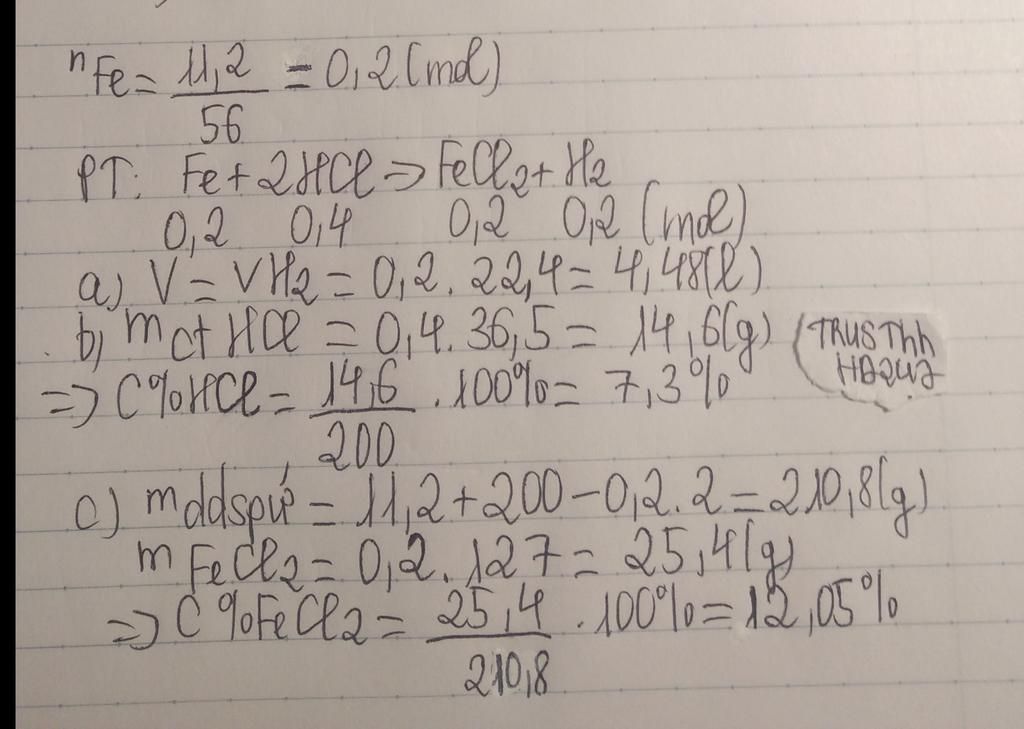 nFe = 11,2/56 = 0,2 (mol)
PT: Fe + 2HCl => FeCl2 + H2
0,2 0,4 0,2 0,2 (mol)
a) V = VH2 = 0,2 . 22,4 = 4,48(l)
b) mct HCl = 0,4 . 36,5 = 14,6(g)
=> C%HCl = 14,6/200 . 100% = 7,3%
c) mddspứ = 11,2 + 200 - 0,2 . 2 = 210,8(g)
mFeCl2 = 0,2 . 127 = 25,4(g)
=> C%FeCl2 = 25,4/210,8 . 100% = 12,05%